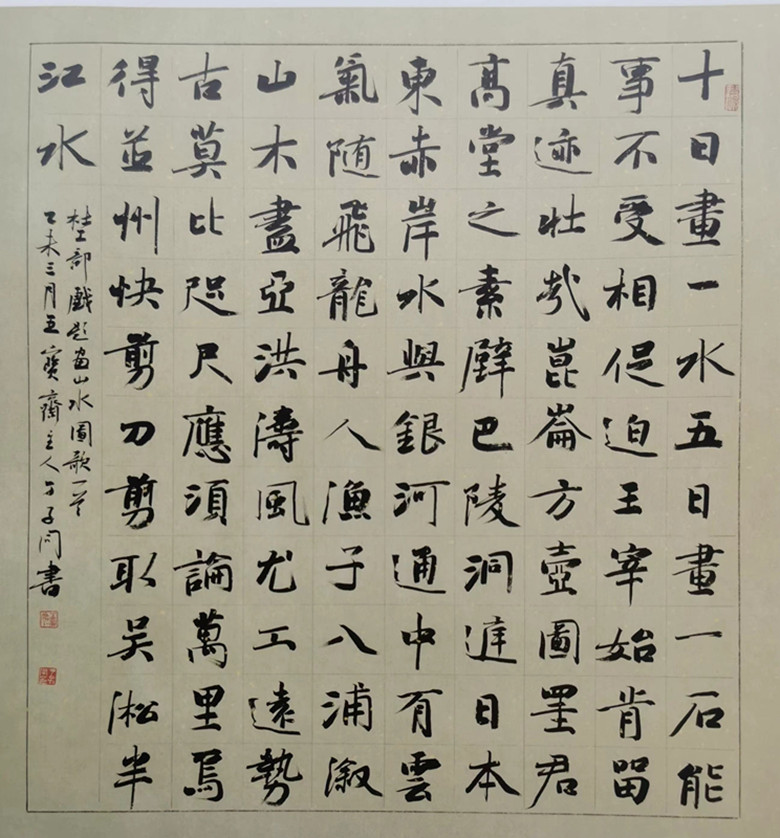 十日畫一水五日畫一石能
事不受相促迫王宰始肯留
真迹壯哉崑崙方壺圖罣君
髙堂之素壁巴陵洞庭日本
東赤岸水與銀河通中有雲
氣随飛龍舟人漁子入浦溆
山木盡亞洪濤風尤工遠勢
古莫比咫尺應須論萬里焉
得並州快剪刀剪取吳淞半
江水
杜工部戲題畫山水圖歌一首
乙未三月五寶齋主人書